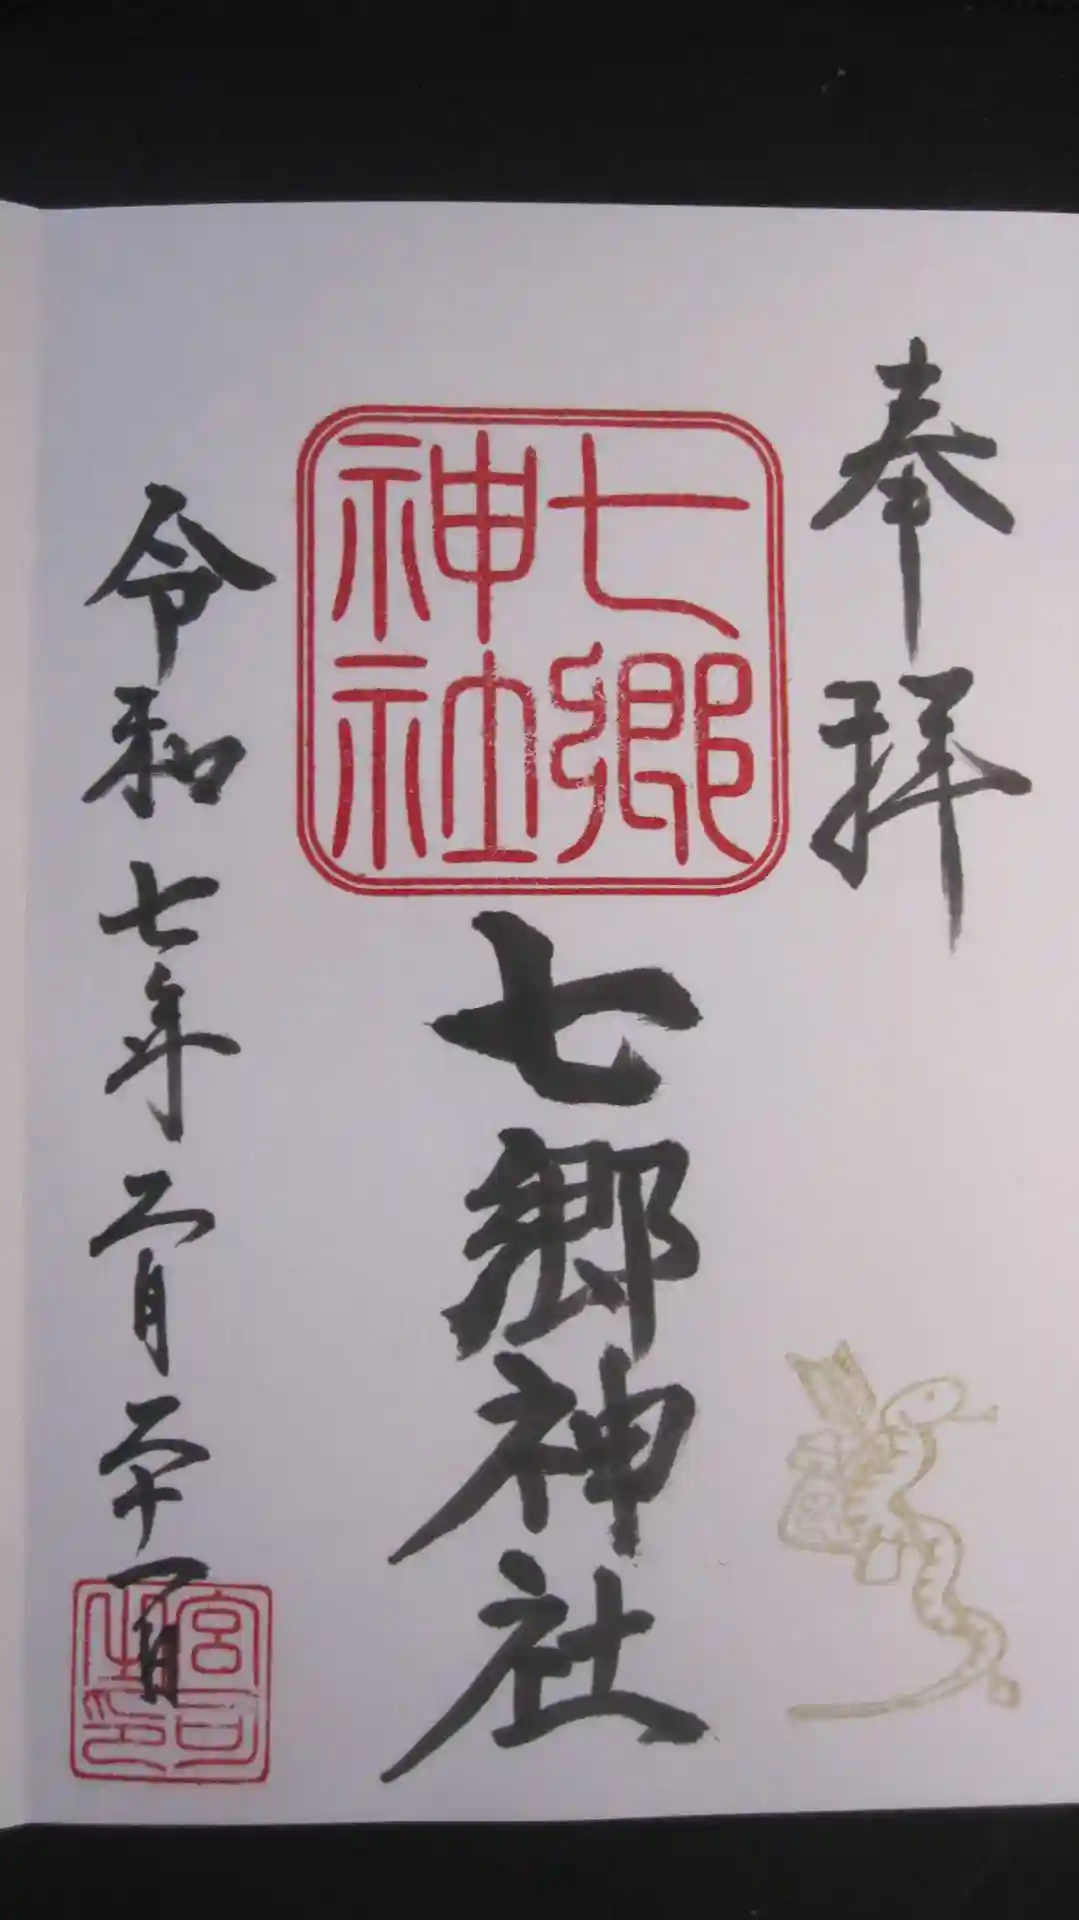 奉拝
七郷
神社
七郷神社
令和七年二月二十一日
宮司
之印